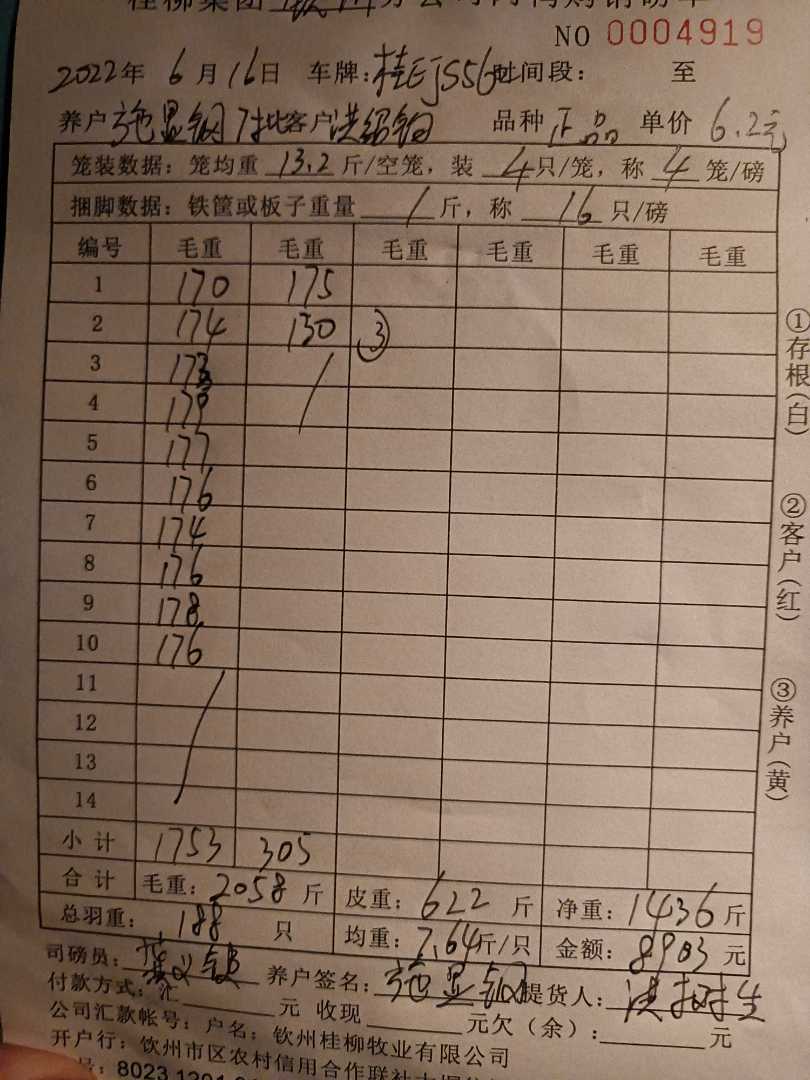 桂柳集团 钦州 分公司肉鸭购销磅单
NO 0004919
2022年 6月16日 车牌:桂EJS56 时间段: 至
养户 施显钢 7批 客户 洪绍 品种 正品 单价 6.2元
笼装数据:笼均重 13.2 斤/空笼,装 4 只/笼,称 4 笼/磅
捆脚数据:铁筐或板子重量 1 斤,称 16 只/磅
编号 毛重 毛重 毛重 毛重 毛重 毛重
1 170 175
2 174 130 ③
3 173
4 179
5 177
6 176
7 174
8 176
9 178
10 176
11
12
13
14
小计 1753 305
合计 毛重:2058 斤 皮重:622 斤 净重:1436 斤
总羽重:188 只 均重:7.64 斤/只 金额:8903 元
司磅员: 养户签名:施显钢 提货人:洪
付款方式:汇 元 收现 元欠(余): 元
公司汇款帐号:户名:钦州桂柳牧业有限公司
开户行:钦州市区农村信用合作联社
号:8023 1201
①存根(白)
②客户(红)
③养户(黄)